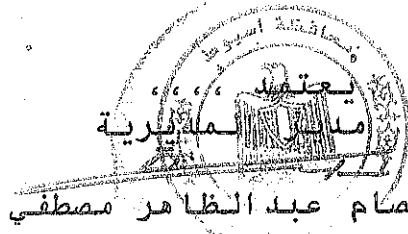 محافظة أسيوط
يعتمد ،،،،
مدير المديرية
صام عبدالظاهر مصطفي